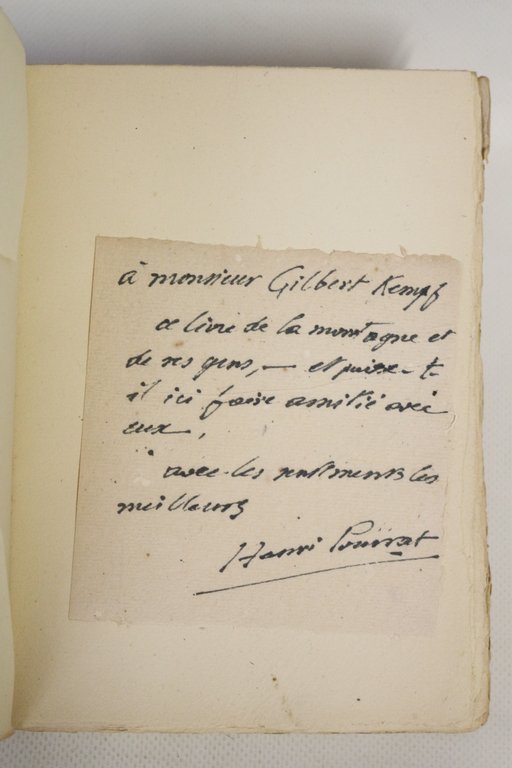 à monsieur Gilbert Kempf
ce livre de la montagne et
de ses gens, — et puisse-t-
il ici faire amitié avec
eux.
avec les sentiments les
meilleurs
Henri Pourrat